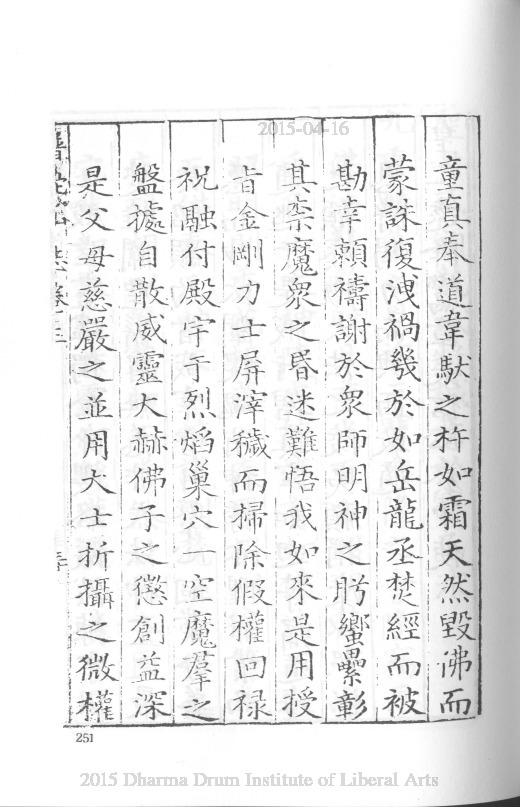 2015-04-16
童真奉道韋馱之杵如霜天然毀佛而
蒙誅復洩禍幾於如岳龍丞焚經而被
勘幸賴禱謝於衆師明神之肹蠁纍彰
其柰魔衆之昏迷難悟我如來是用授
旨金剛力士屏滓穢而掃除假權回祿
祝融付殿宇于烈熖巢穴一空魔羣之
盤據自散威靈大赫佛子之懲創益深
是父母慈嚴之並用大士折攝之微權
251
2015 Dharma Drum Institute of Liberal Arts